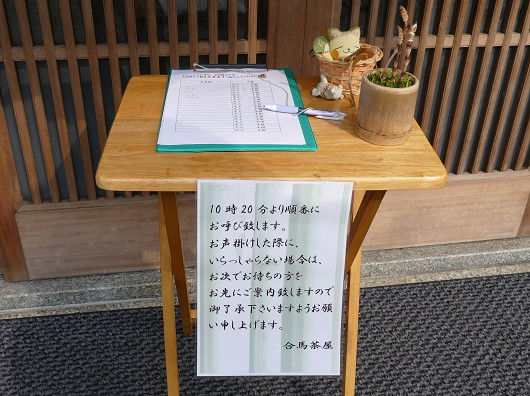 10時20分より順番に
お呼び致します。
お声掛けした際に、
いらっしゃらない場合は、
お次でお待ちの方を
お先にご案内致しますので
御了承下さいますようお願
い申し上げます。
合馬茶屋